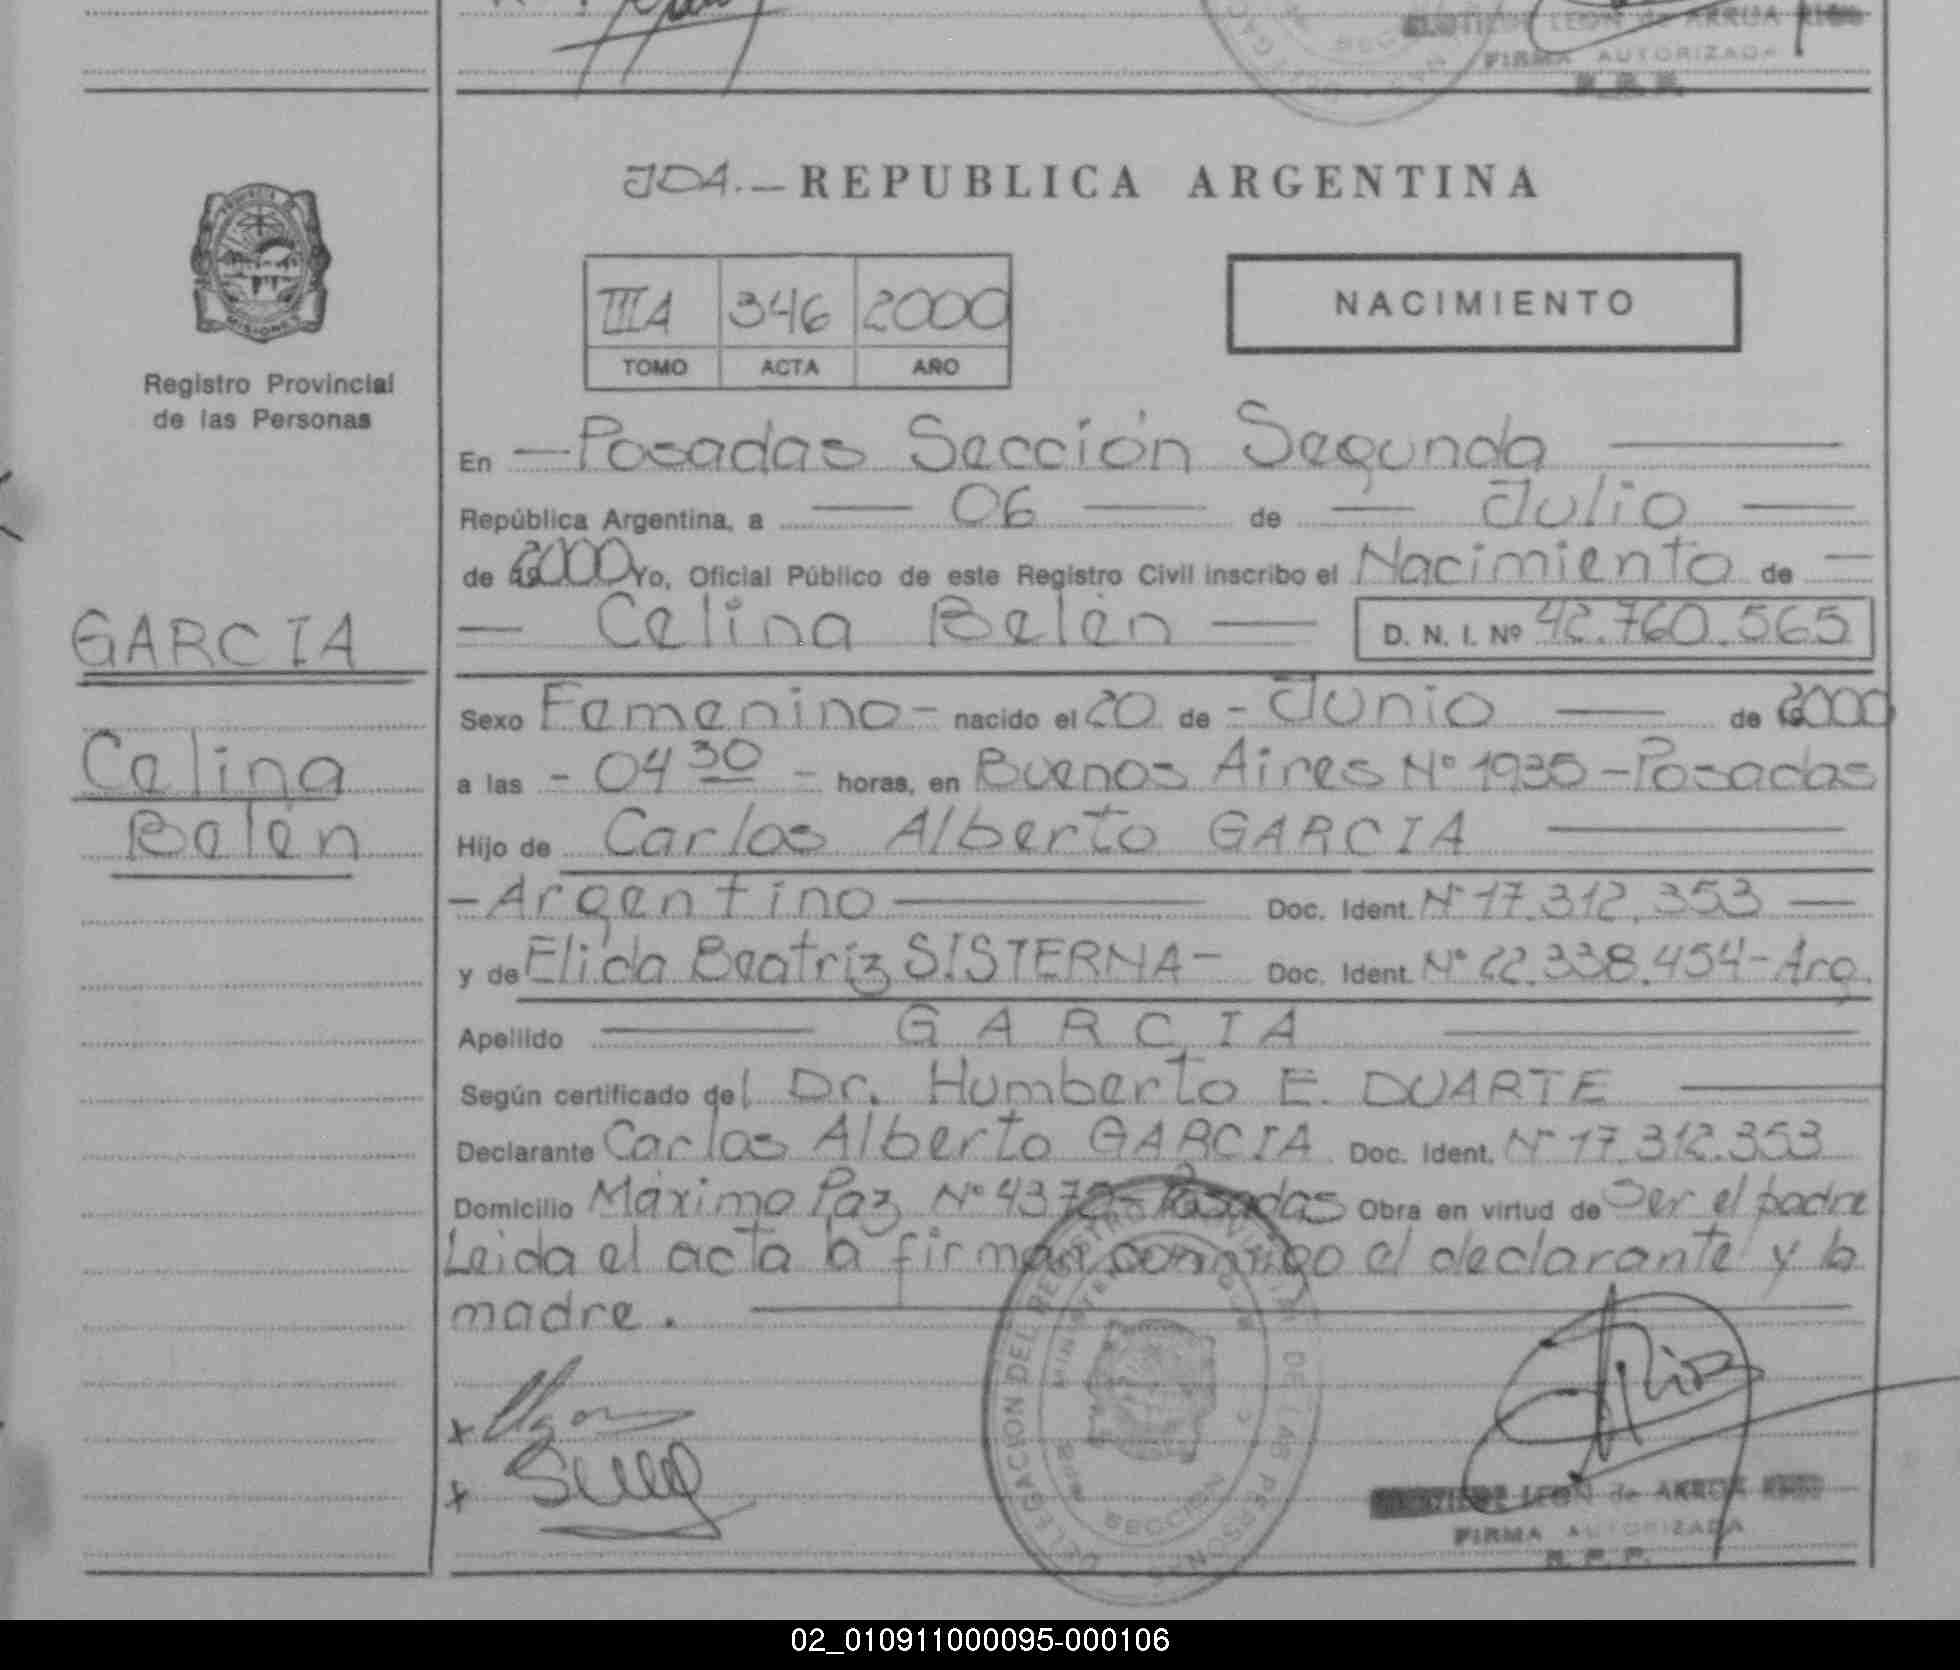 LEON de ARRUA
FIRMA AUTORIZADA
R. P. P.
JDA.- REPUBLICA ARGENTINA
MISIONES
Registro Provincial
de las Personas
IIIA 346 2000
TOMO ACTA AÑO
NACIMIENTO
En — Posadas Sección Segunda —
República Argentina, a — 06 — de — Julio —
de 2000 Yo, Oficial Público de este Registro Civil inscribo el Nacimiento de —
— Celina Belén — D. N. I. Nº 42.760.565
GARCIA
Celina
Belén
Sexo Femenino - nacido el 20 de - Junio — de 2000
a las - 04 30 - horas, en Buenos Aires Nº 1935 - Posadas
Hijo de Carlos Alberto GARCIA —
- Argentino — Doc. Ident. Nº 17.312.353 —
y de Elida Beatriz SISTERNA - Doc. Ident. Nº 22.338.454 - Arg.
Apellido — GARCIA —
Según certificado del Dr. Humberto E. DUARTE —
Declarante Carlos Alberto GARCIA Doc. Ident. Nº 17.312.353
Domicilio Máximo Paz Nº - Posadas Obra en virtud de Ser el padre
Leida el acta la firman conmigo el declarante y la
madre. —
DELEGACION DEL REGISTRO PROVINCIAL DE LAS PERSONAS
SECCION
LEON de ARRUA
FIRMA AUTORIZADA
R. P. P.
02_010911000095-000106